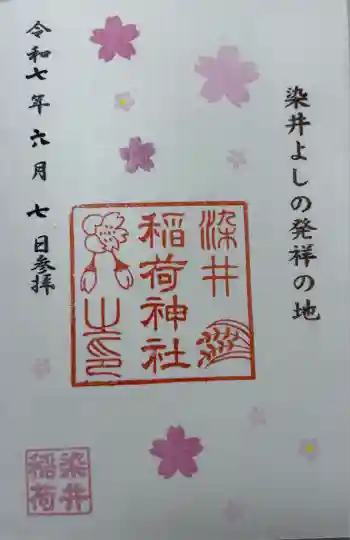 染井よしの発祥の地
染井
稲荷神社
之印
令和七年六月七日参拝
染井
稲荷